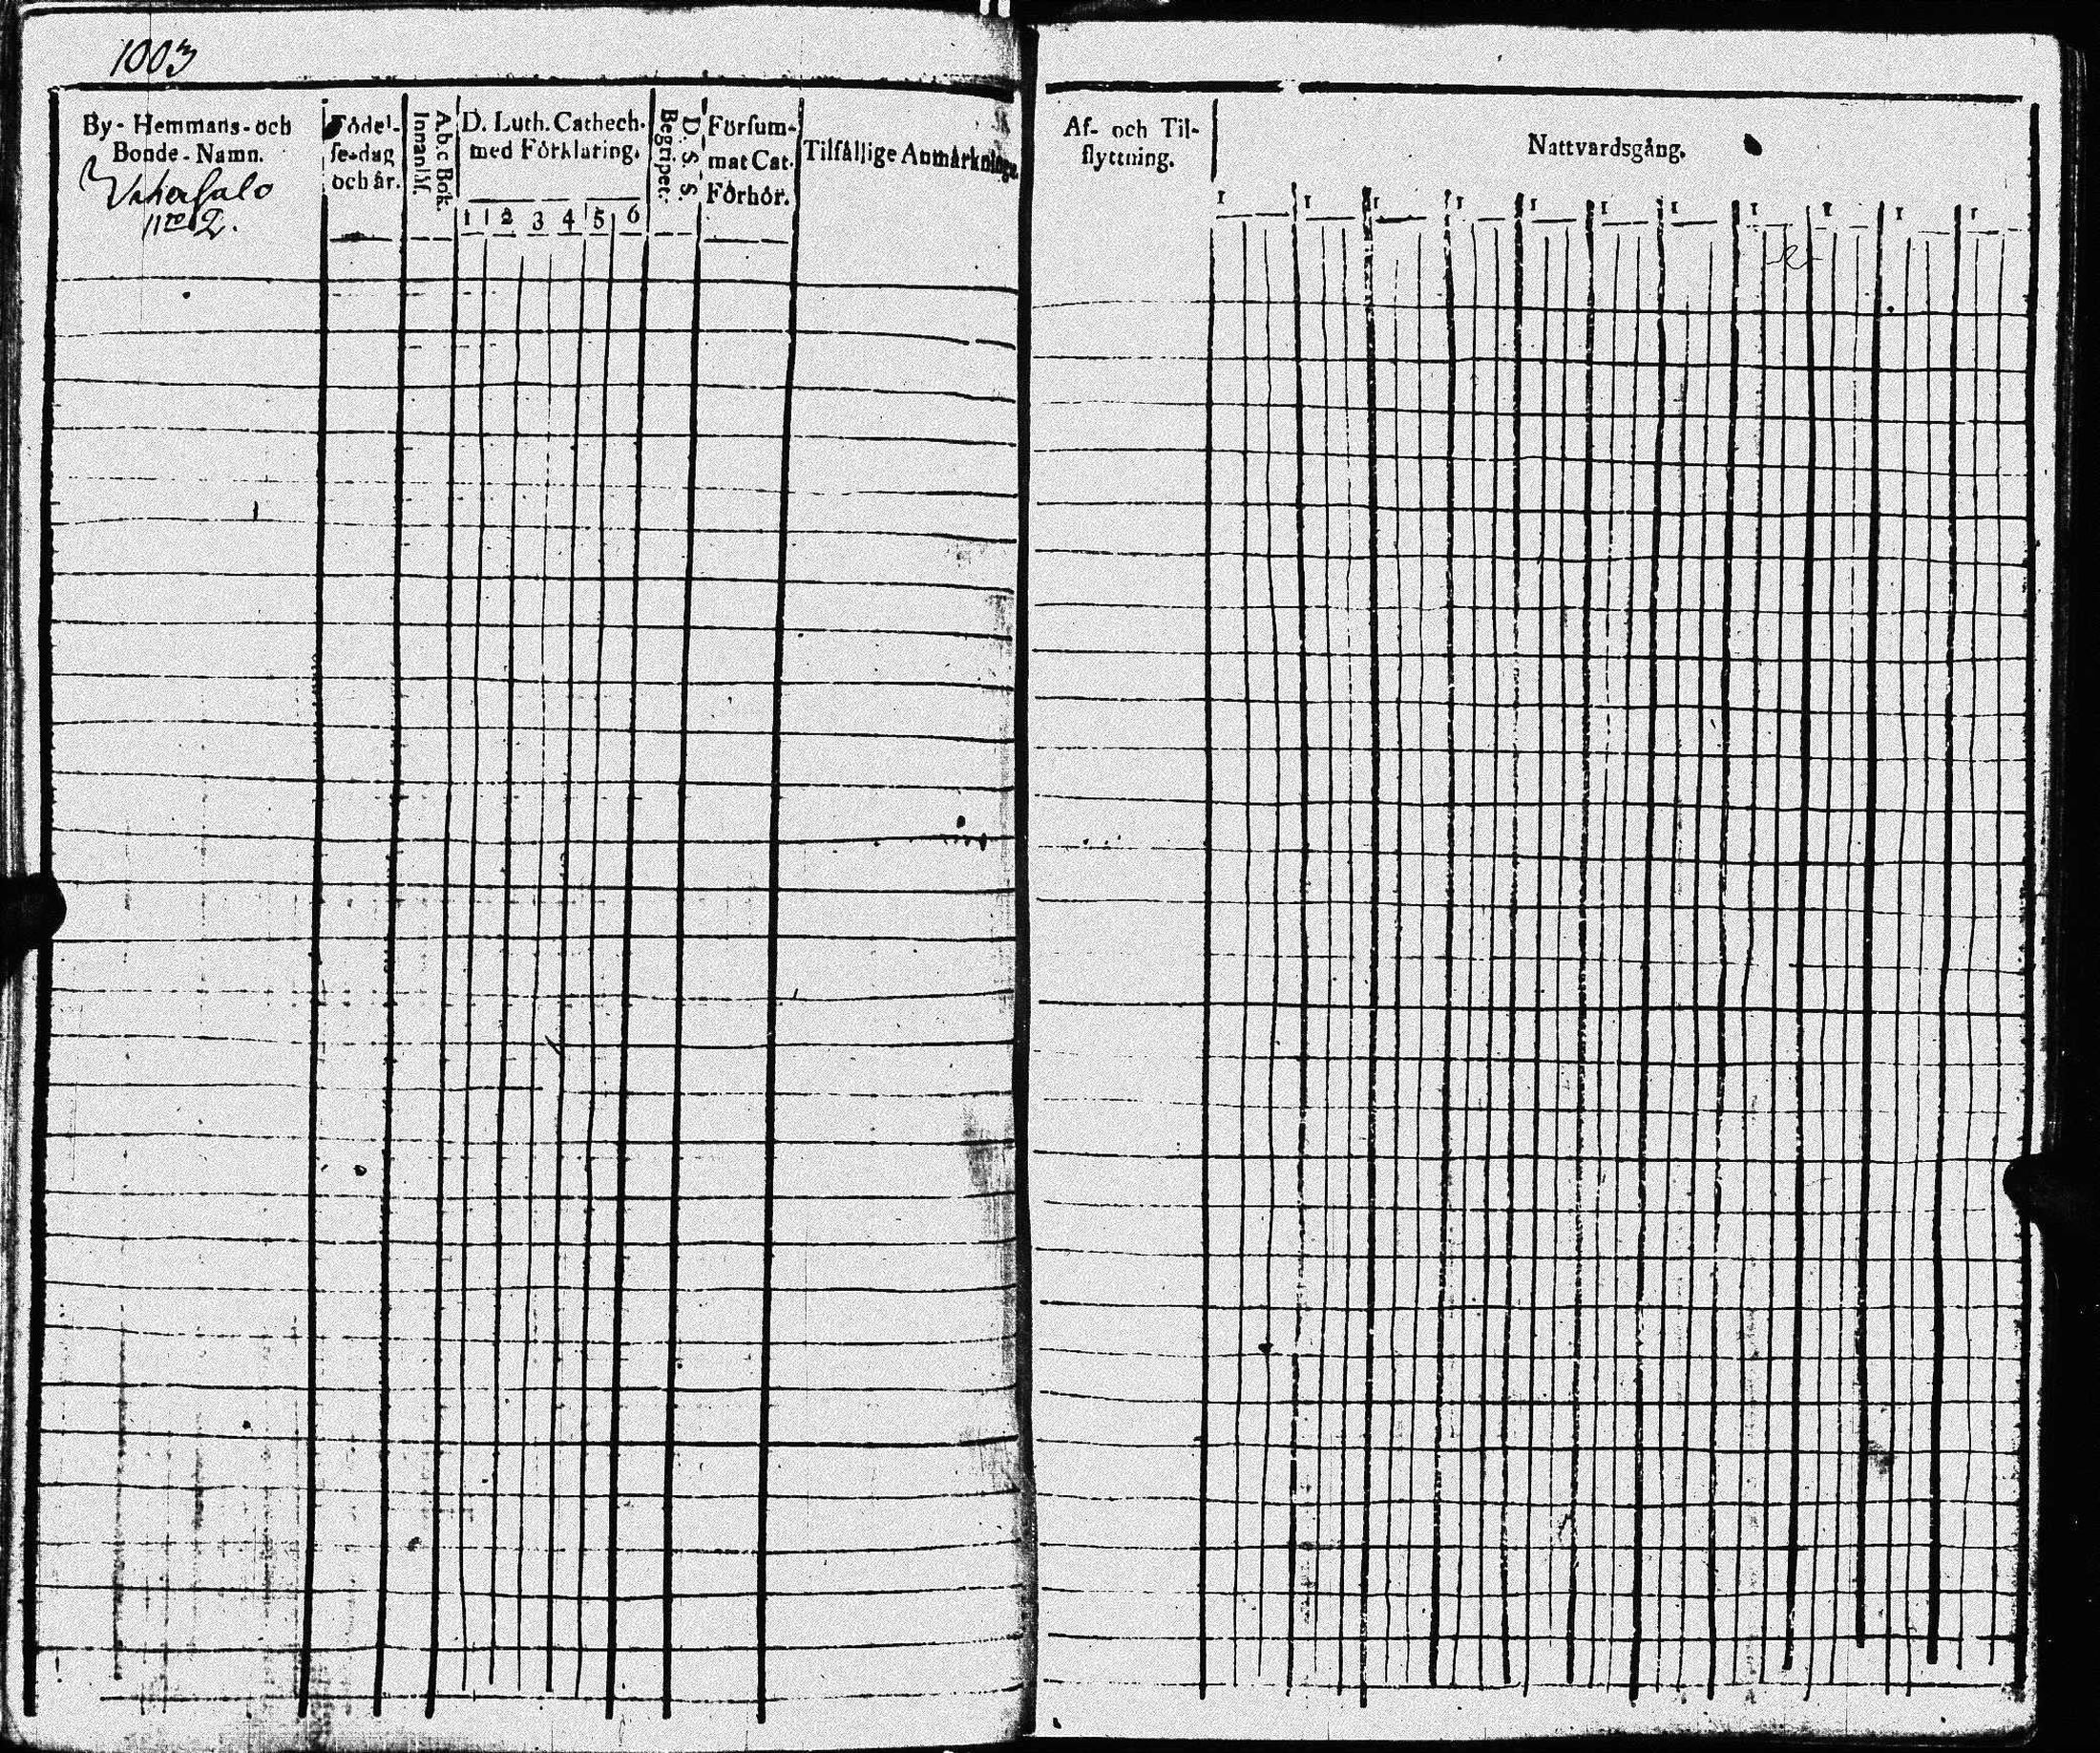 1003
By- Hemmans- och
Bonde-Namn.
nro 2.
Fõdel-
se-dag
och år.
A.b.c Bok.
Innanläs.
D. Luth. Cathech.
med Fõrklaring.
1 2 3 4 5 6
D. S. S.
Begripet.
Fõrsum-
mat Cat.
Fõrhõr.
Tilfällige Anmärkninge
Af- och Til-
flyttning.
Nattvardsgång.
1 1 1 1 1 1 1 1 1 1 1